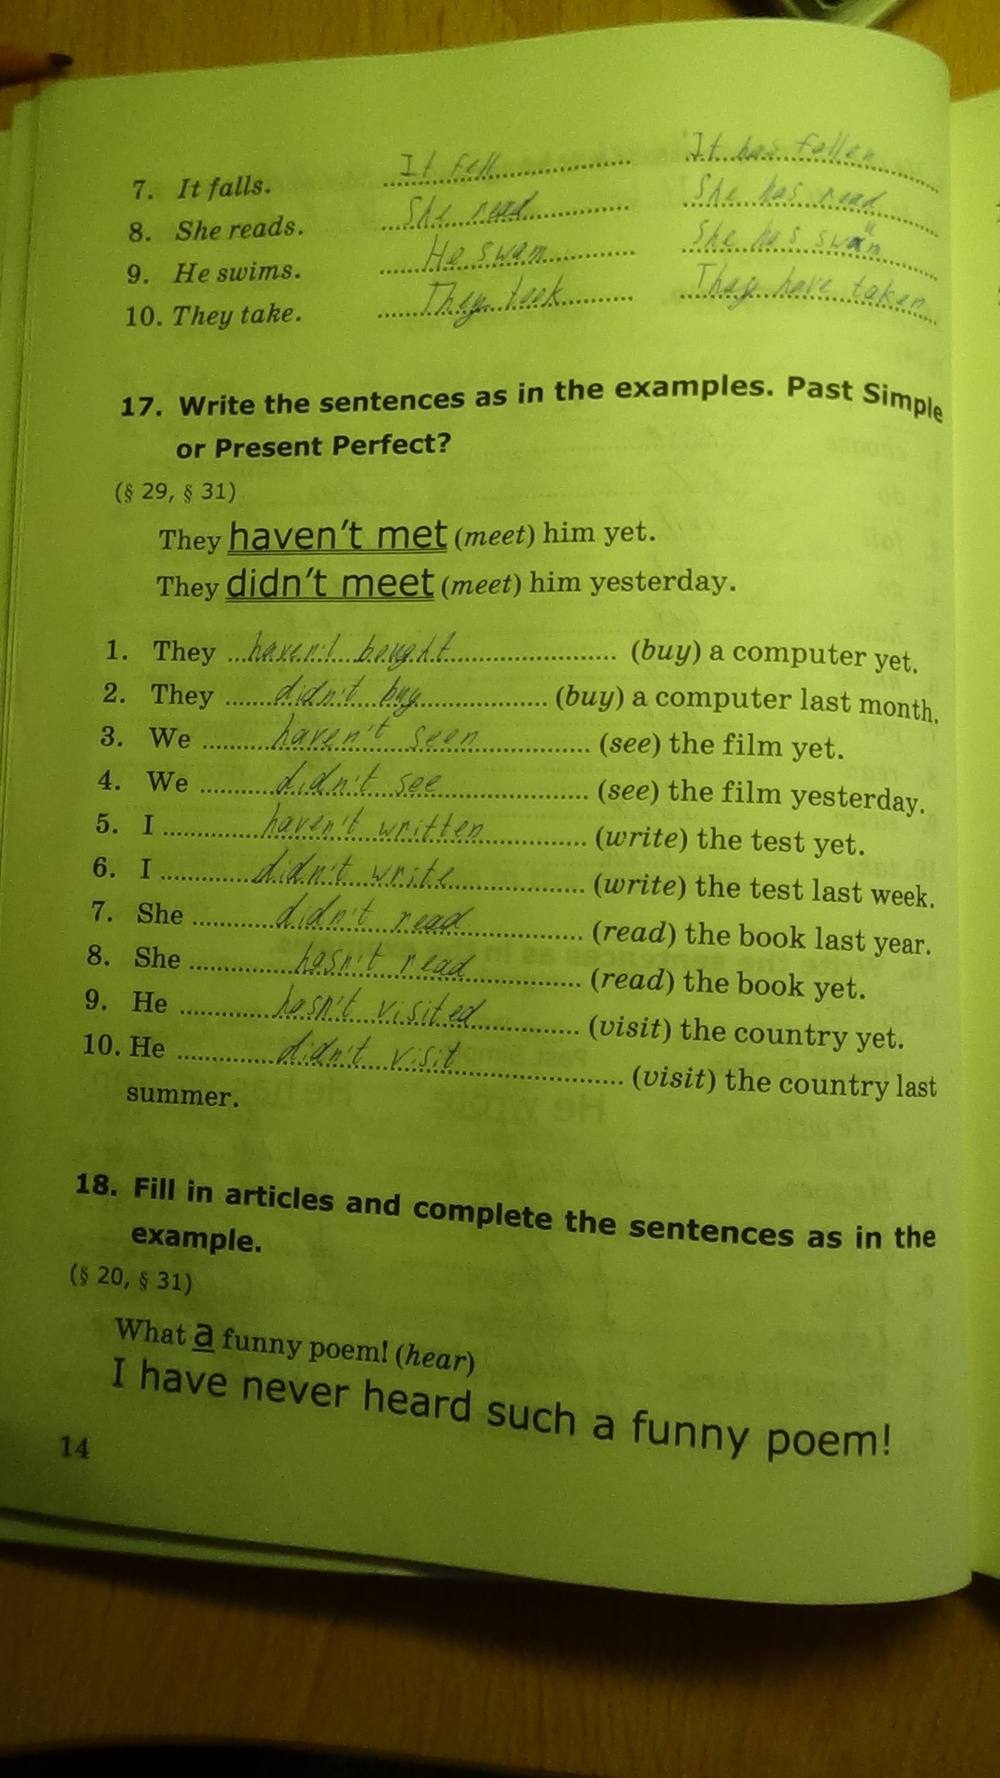 7. It falls. It fell It has fallen
8. She reads. She read She has read
9. He swims. He swam She has swum
10. They take. They took They have taken
17. Write the sentences as in the examples. Past Simple
or Present Perfect?
(§ 29, § 31)
They haven't met (meet) him yet.
They didn't meet (meet) him yesterday.
1. They haven't bought (buy) a computer yet.
2. They didn't buy (buy) a computer last month.
3. We haven't seen (see) the film yet.
4. We didn't see (see) the film yesterday.
5. I haven't written (write) the test yet.
6. I didn't write (write) the test last week.
7. She didn't read (read) the book last year.
8. She hasn't read (read) the book yet.
9. He hasn't visited (visit) the country yet.
10. He didn't visit (visit) the country last
summer.
18. Fill in articles and complete the sentences as in the
example.
(§ 20, § 31)
What a funny poem! (hear)
I have never heard such a funny poem!
14